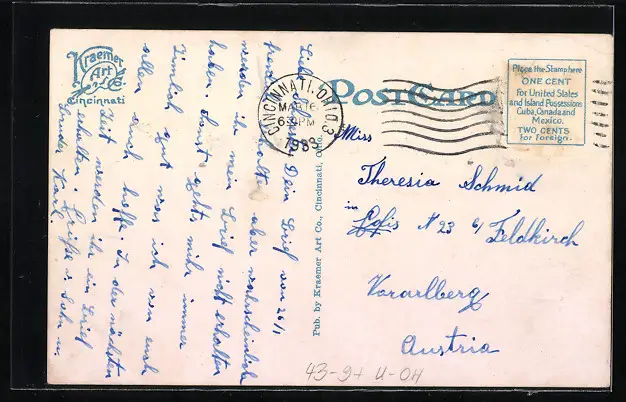 Kraemer
Art Co
Cincinnati
POST CARD
Place the Stamp here
ONE CENT
for United States
and Island Possessions
Cuba, Canada and
Mexico.
TWO CENTS
for Foreign.
CINCINNATI, OHIO. 3
MAR 16
6 30 PM
Pub. by Kraemer Art Co., Cincinnati, Ohio.
Miss
Theresia Schmid
in Lofis N 23 b/ Feldkirch
Vorarlberg
Austria
43-9+ U-OH
Dein Brief von 26/1
erhalten aber wahrscheinlich
werden ihr mein Brief nicht erhalten
haben. Sonst gehts mir immer
Zimlich gut was ich von euch
allen auch hoffe. In der nächsten
Zeit werden ihr ein Brief
erhalten. Grüße u.
Bruder Karl.